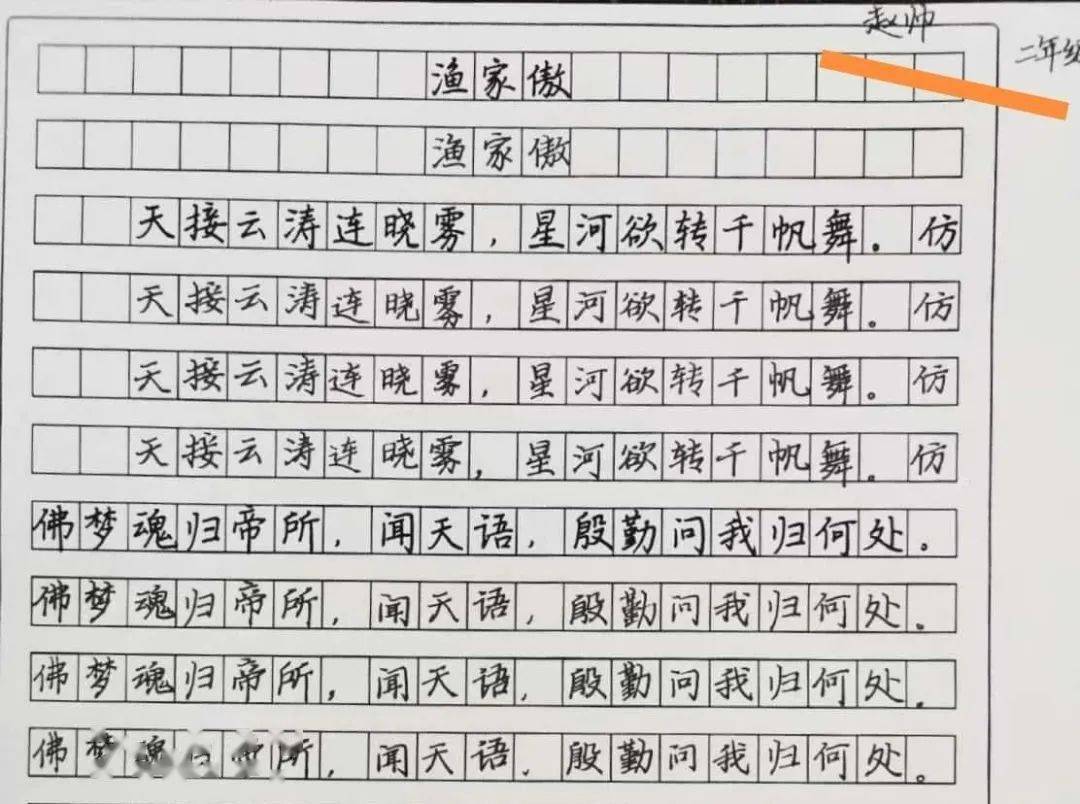 赵帅
二年级
渔家傲
渔家傲
天接云涛连晓雾，星河欲转千帆舞。仿
天接云涛连晓雾，星河欲转千帆舞。仿
天接云涛连晓雾，星河欲转千帆舞。仿
天接云涛连晓雾，星河欲转千帆舞。仿
佛梦魂归帝所，闻天语，殷勤问我归何处。
佛梦魂归帝所，闻天语，殷勤问我归何处。
佛梦魂归帝所，闻天语，殷勤问我归何处。
佛梦魂归帝所，闻天语，殷勤问我归何处。